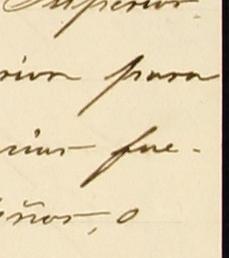 Superior
rior para
cias fue-
iños, o